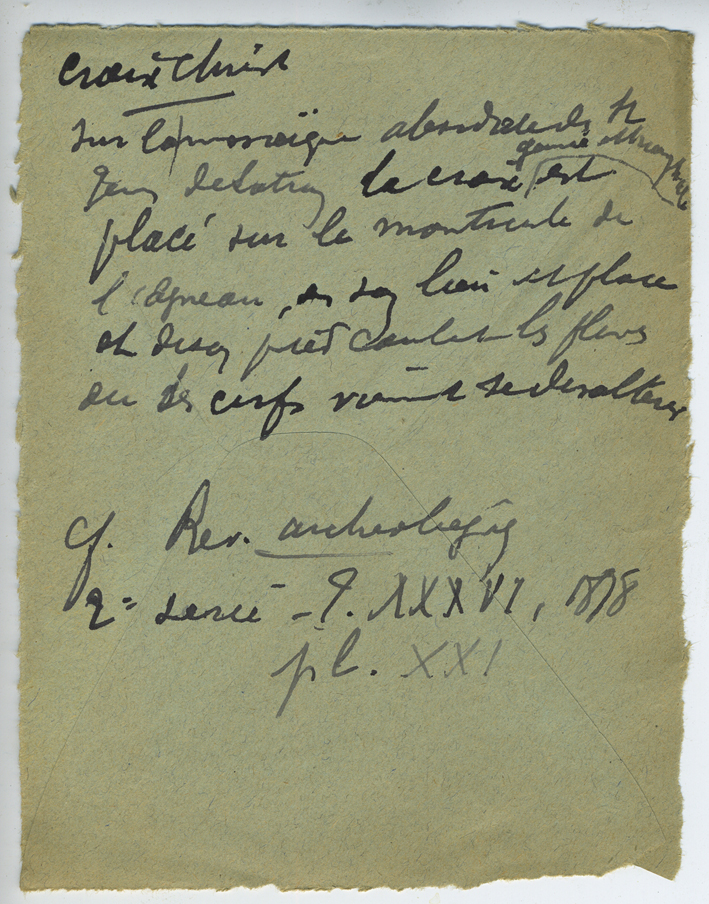 Croix Christ
sur la mosaïque absidale de St
Jean de Latran la croix gemmée est
placé sur le monticule de
l'agneau, en son lieu et place
et de son pied coulent les fleuves
ou des cerfs viennent se desalterer
cf. Rev. archeologiq
2e serie - T. XXXVI, 1878
pl. XXI